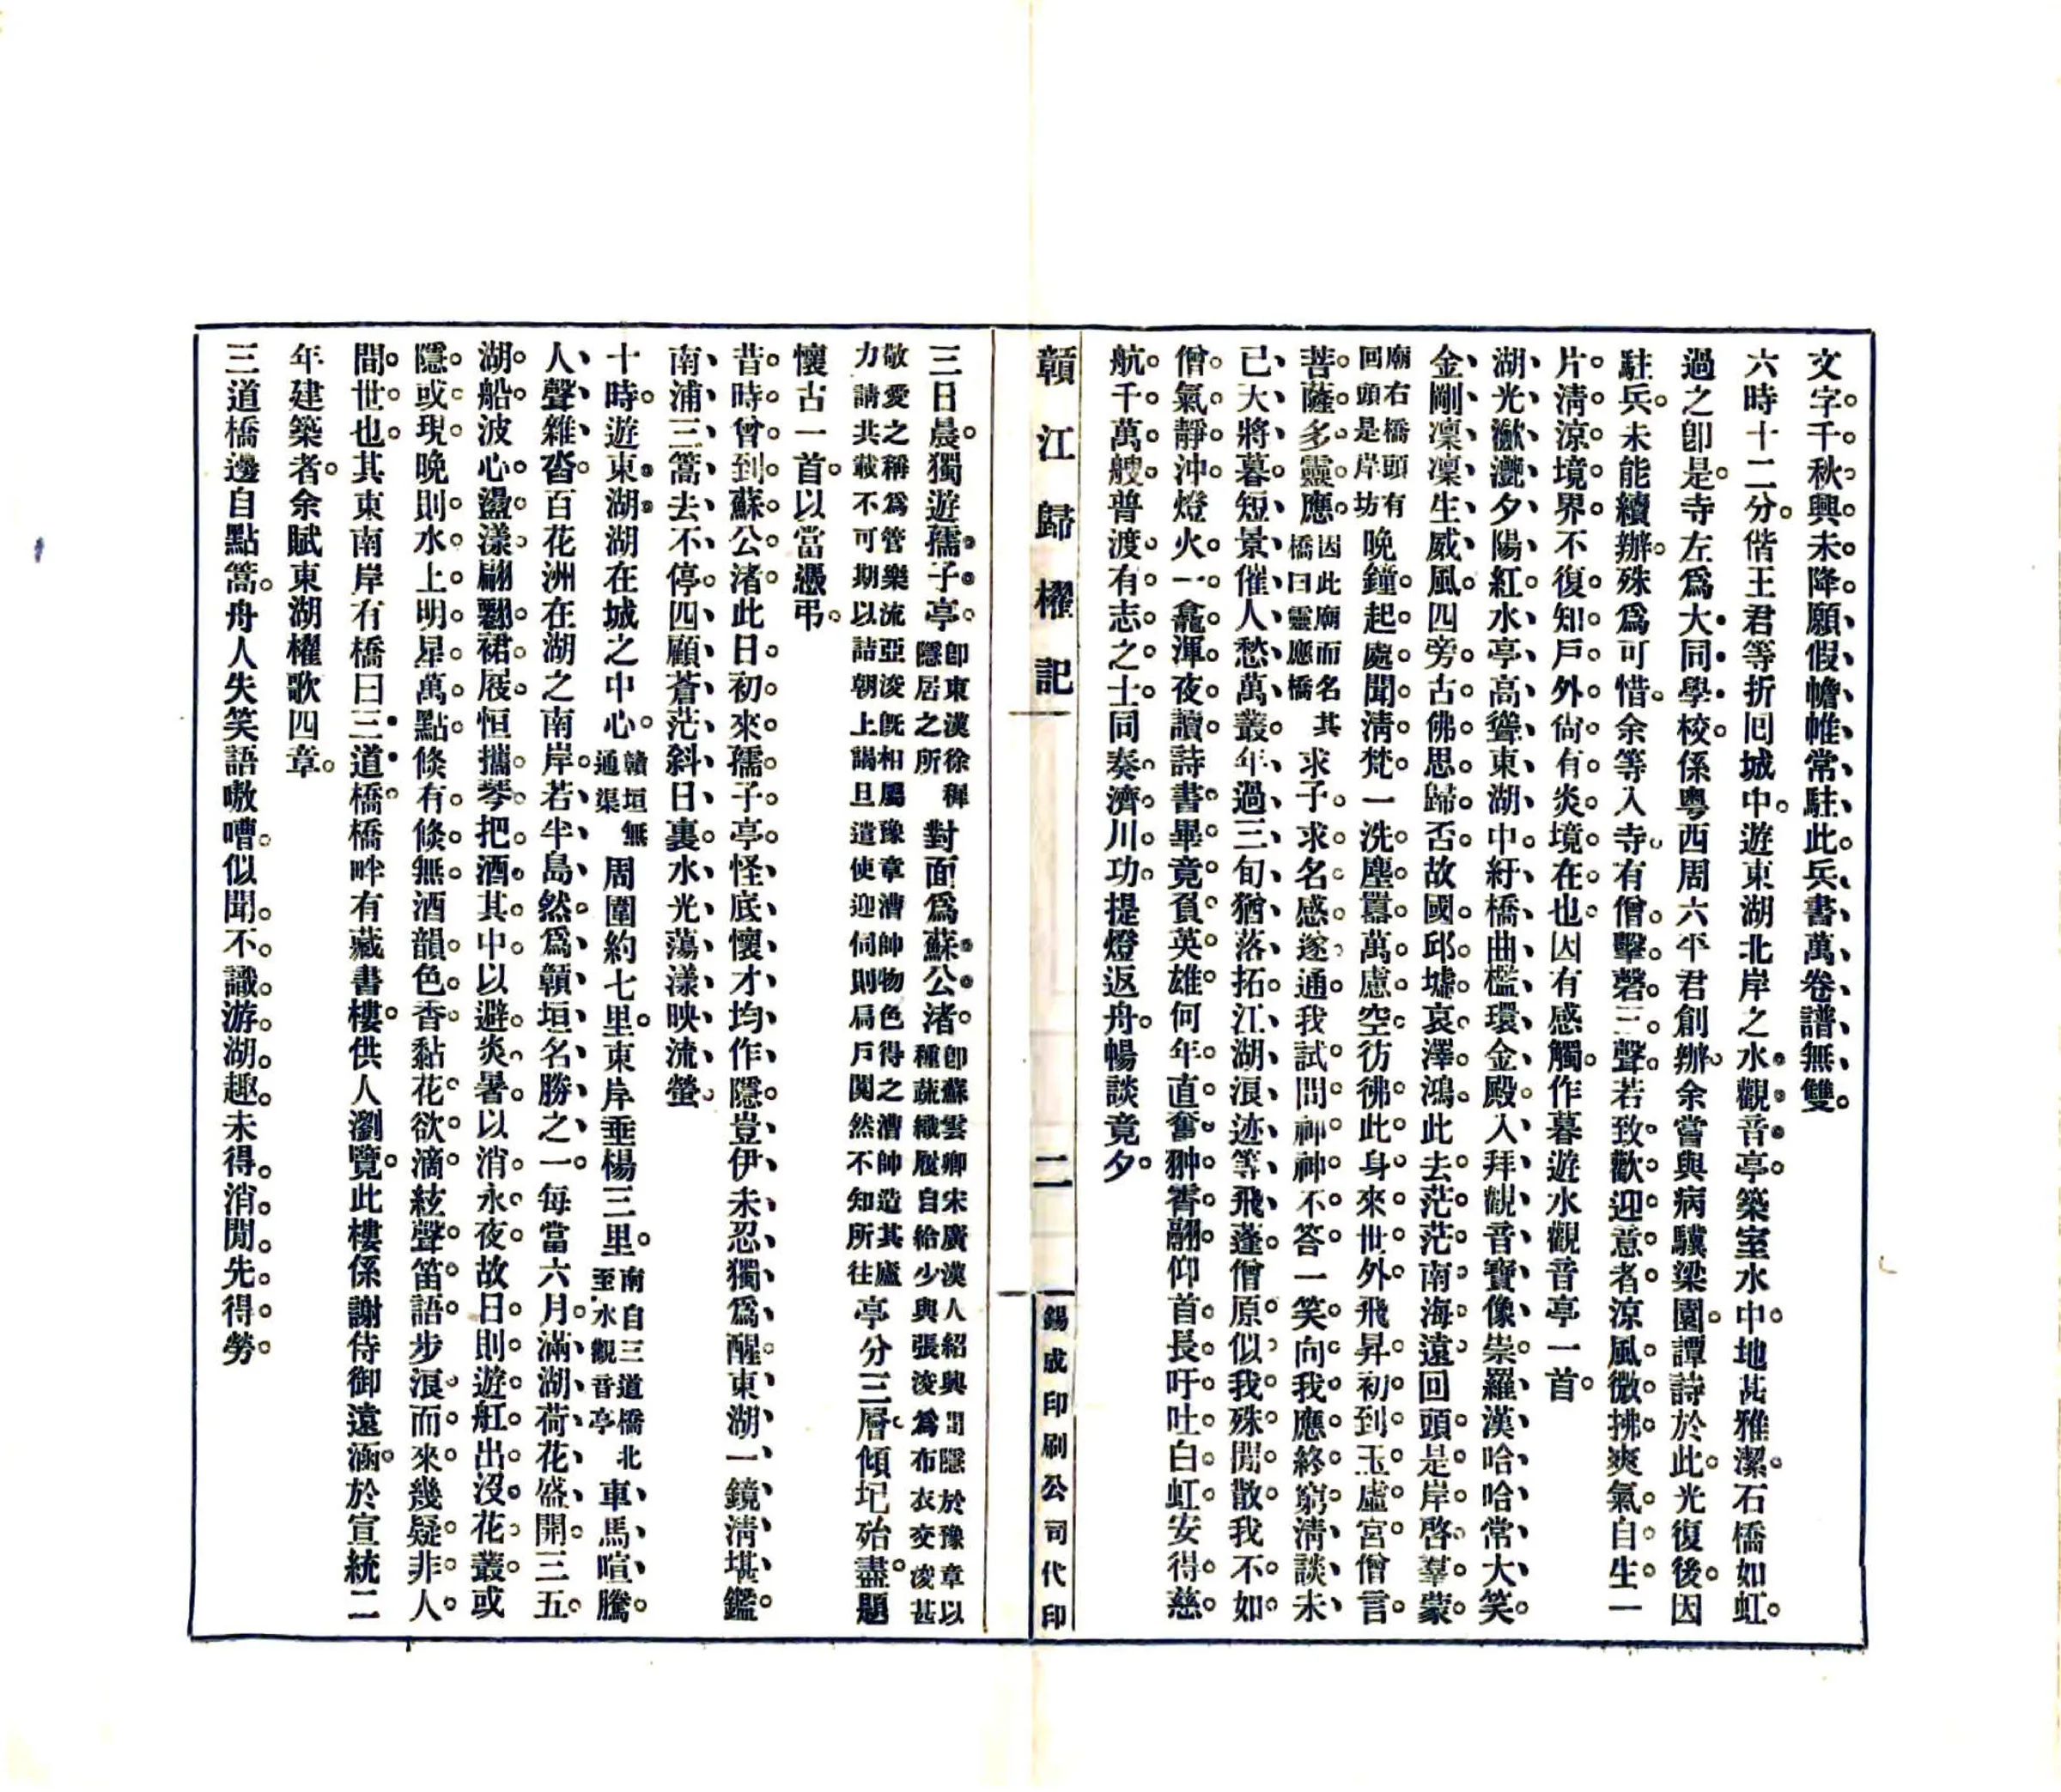 文字千秋興未降願假幨帷常駐此兵書萬卷譜無雙
六時十二分偕王君等折囘城中遊東湖北岸之水觀音亭築室水中地甚雅潔石橋如虹
過之卽是寺左爲大同學校係粵西周六平君創辦余嘗與病驥梁園譚詩於此光復後因
駐兵未能續辦殊爲可惜余等入寺有僧擊磬三聲若致歡迎意者涼風微拂爽氣自生一
片淸涼境界不復知戶外尙有炎境在也因有感觸作暮遊水觀音亭一首
湖光瀲灔夕陽紅水亭高聳東湖中紆橋曲檻環金殿入拜觀音寶像崇羅漢哈哈常大笑
金剛凜凜生威風四旁古佛思歸否故國邱墟哀澤鴻此去茫茫南海遠回頭是岸啓羣蒙
廟右橋頭有
回頭是岸坊
晚鐘起處聞淸梵一洗塵囂萬慮空彷彿此身來世外飛昇初到玉虛宮僧言
菩薩多靈應
因此廟而名其
橋曰靈應橋
求子求名感遂通我試問神神不答一笑向我應終窮淸談未
已大將暮短景催人愁萬叢年過三旬猶落拓江湖浪迹等飛蓬僧原似我殊閒散我不如
僧氣靜沖燈火一龕渾夜讀詩書畢竟負英雄何年直奮翀霄翮仰首長吁吐白虹安得慈
航千萬艘普渡有志之士同奏濟川功提燈返舟暢談竟夕
贛江歸櫂記
二
錫成印刷公司代印
三日晨獨遊孺子亭
卽東漢徐穉
隱居之所
對面爲蘇公渚
卽蘇雲卿宋廣漢人紹興間隱於豫章以
種蔬織履自給少與張浚爲布衣交浚甚
敬愛之稱爲管樂流亞浚旣相屬豫章漕帥物色得之漕帥造其廬
力請共載不可期以詰朝上謁旦遣使迎伺則扃戶闃然不知所往
亭分三層傾圮殆盡題
懷古一首以當憑弔
昔時曾到蘇公渚此日初來孺子亭怪底懷才均作隱豈伊未忍獨爲醒東湖一鏡淸堪鑑
南浦三篙去不停四顧蒼茫斜日裏水光蕩漾映流螢
十時遊東湖湖在城之中心
贛垣無
通渠
周圍約七里東岸垂楊三里
南自三道橋北
至水觀音亭
車馬喧騰
人聲雜沓百花洲在湖之南岸若半島然爲贛垣名勝之一每當六月滿湖荷花盛開三五
湖船波心盪漾翩翻裙屐恒攜琴把酒其中以避炎暑以消永夜故日則遊舡出沒花叢或
隱或現晚則水上明星萬點倏有倏無酒韻色香黏花欲滴絃聲笛語步浪而來幾疑非人
間世也其東南岸有橋曰三道橋橋畔有藏書樓供人瀏覽此樓係謝侍御遠涵於宣統二
年建築者余賦東湖櫂歌四章
三道橋邊自點篙舟人失笑語嗷嘈似聞不識游湖趣未得消閒先得勞